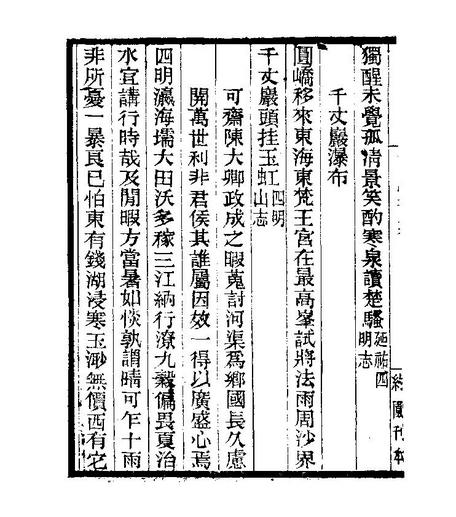 獨醒未覺孤清景笑酌寒泉讀楚騷延祐四明志
千丈巖瀑布
圓嶠移來東海東梵王宮在最高峯試將法雨周沙界
千丈巖頭挂玉虹四明山志
可齋陳大卿政成之暇蒐討河渠爲鄉國長久慮
開萬世利非君侯其誰屬因效一得以廣盛心焉
四明瀛海壖大田沃多稼三江納行潦九穀偏畏夏治
水宜講行時哉及閒暇方當暑如惔孰謂晴可乍十雨
非所憂一暴良已怕東有錢湖浸寒玉渺無價西有它
約園刊本